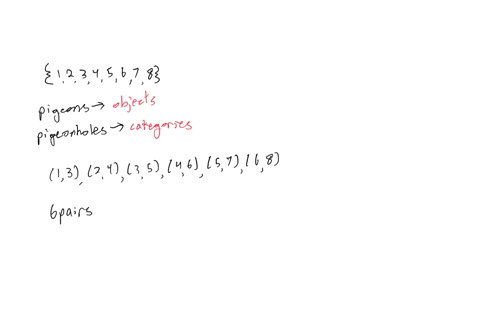 {1,2,3,4,5,6,7,8}
pigeons → objects
pigeonholes → categories
(1,3), (2,4), (3,5), (4,6), (5,7), (6,8)
6pairs